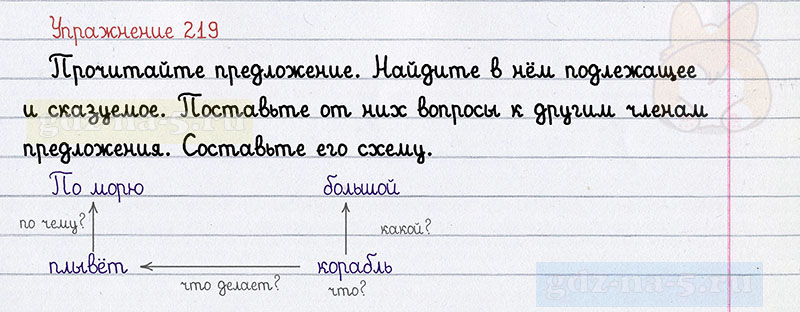 Упражнение 219
Прочитайте предложение. Найдите в нём подлежащее
и сказуемое. Поставьте от них вопросы к другим членам
предложения. Составьте его схему.
По морю большой
по чему? какой?
плывёт корабль
что делает? что?
gdz-na-5.ru
gdz-na-5.ru